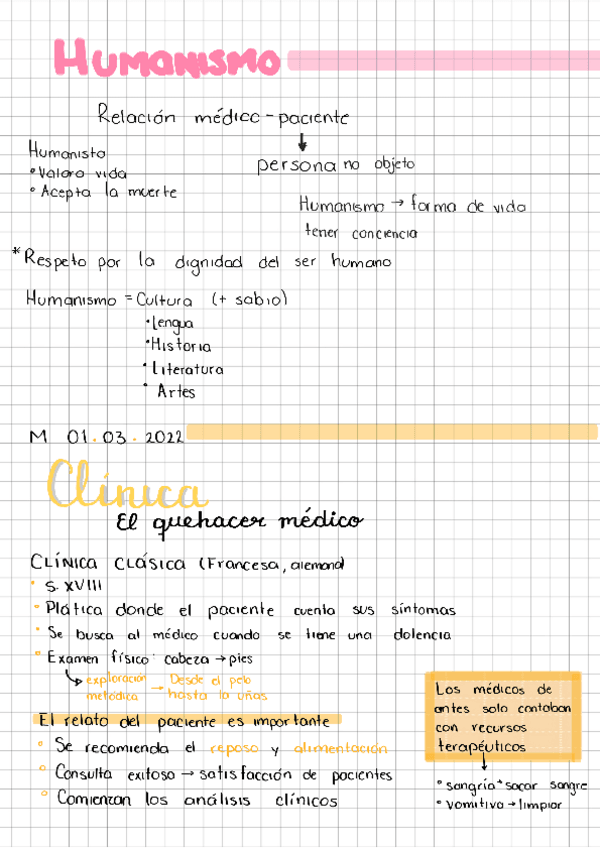 Humanismo
Relación médico - paciente
↓
persona no objeto
Humanista
• Valora vida
• Acepta la muerte
Humanismo → forma de vida
tener conciencia
*Respeto por la dignidad del ser humano
Humanismo = Cultura (+ sabio)
• Lengua
• Historia
• Literatura
• Artes
M 01.03.2022
Clínica
El quehacer médico
CLÍNICA CLÁSICA (Francesa, alemana)
• S. XVIII
• Plática donde el paciente cuenta sus síntomas
• Se busca al médico cuando se tiene una dolencia
• Examen físico: cabeza → pies
exploración metódica → Desde el pelo hasta la uñas
El relato del paciente es importante
• Se recomienda el reposo y alimentación
• Consulta exitosa → satisfacción de pacientes
• Comienzan los análisis clínicos
Los médicos de
antes solo contaban
con recursos
terapéuticos
↓
• sangría → sacar sangre
• vomitivo → limpiar